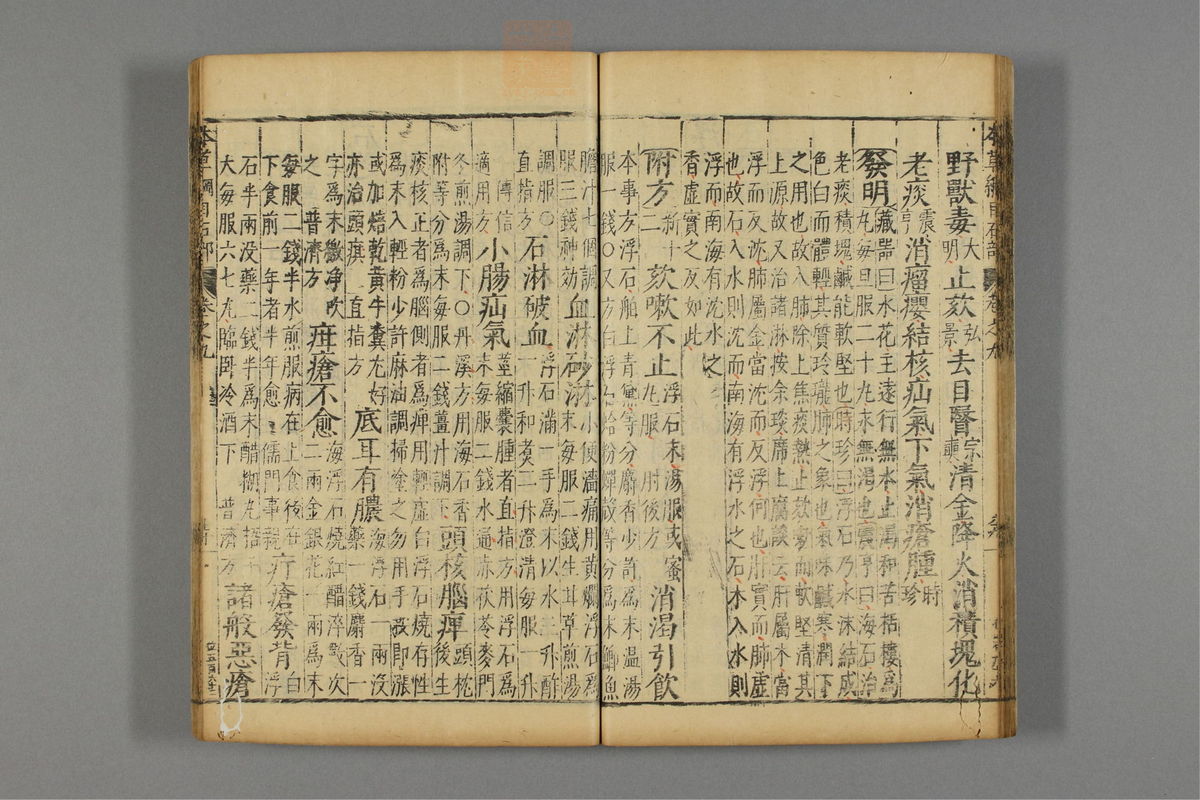 野獸毒大明止欬弘景去目瞖宗奭清金降火消積塊化
老痰震亨消瘤癭結核疝氣下氣消瘡腫時珍
發明藏器曰水花主遠行無水止渴和苦栝樓為
丸每旦服二十丸永無渴也震亨曰海石治
老痰積塊鹹能軟堅也時珍曰浮石乃水沫結成
色白而體輕其質玲瓏肺之象也氣味鹹寒潤下
之用也故入肺除上焦痰熱止欬嗽而軟堅清其
上源故又治諸淋按余琰席上腐談云肝屬木當
浮而反沈肺屬金當沈而反浮何也肝實而肺虛
也故石入水則沈而南海有浮水之石木入水則
浮而南海有沈水之
香虛實之反如此
附方二新十欬嗽不止浮石末湯服或蜜丸服肘後方消渴引飲
本事方浮石舶上青黛等分麝香少許為末温湯
服一錢○又方白浮石蛤粉蟬殻等分為末鯽魚
膽汁七個調
服三錢神効血淋砂淋小便澀痛用黃爛浮石為末每服二錢生甘草煎湯
調服○直指方
石淋破血浮石滿一手為末以水三升酢一升和煮二升澄清每服一升
傳信適用方小腸疝氣莖縮囊腫者直指方用浮石為末每服二錢木通赤茯苓麥門
冬煎湯調下○丹溪方用海石香
附等分為末每服二錢薑汁調下頭核腦痺頭枕後生
痰核正者為腦側者為痺用輕虛白浮石燒存性
為末入輕粉少許麻油調掃塗之勿用手按即漲
或加焙乾黃牛糞尤好
亦治頭㾦直指方底耳有膿海浮石一兩沒藥一錢麝香一
字為末繳净吹
之普濟方疳瘡不愈海浮石燒紅醋淬數次二兩金銀花一兩為末
每服二錢半水煎服病在上食後在
下食前一年者半年愈儒門事親疔瘡發背白浮
石半兩沒藥二錢半為末醋糊丸梧子
大每服六七丸臨卧冷酒下普濟方諸般惡瘡
本草綱目石部
卷之九